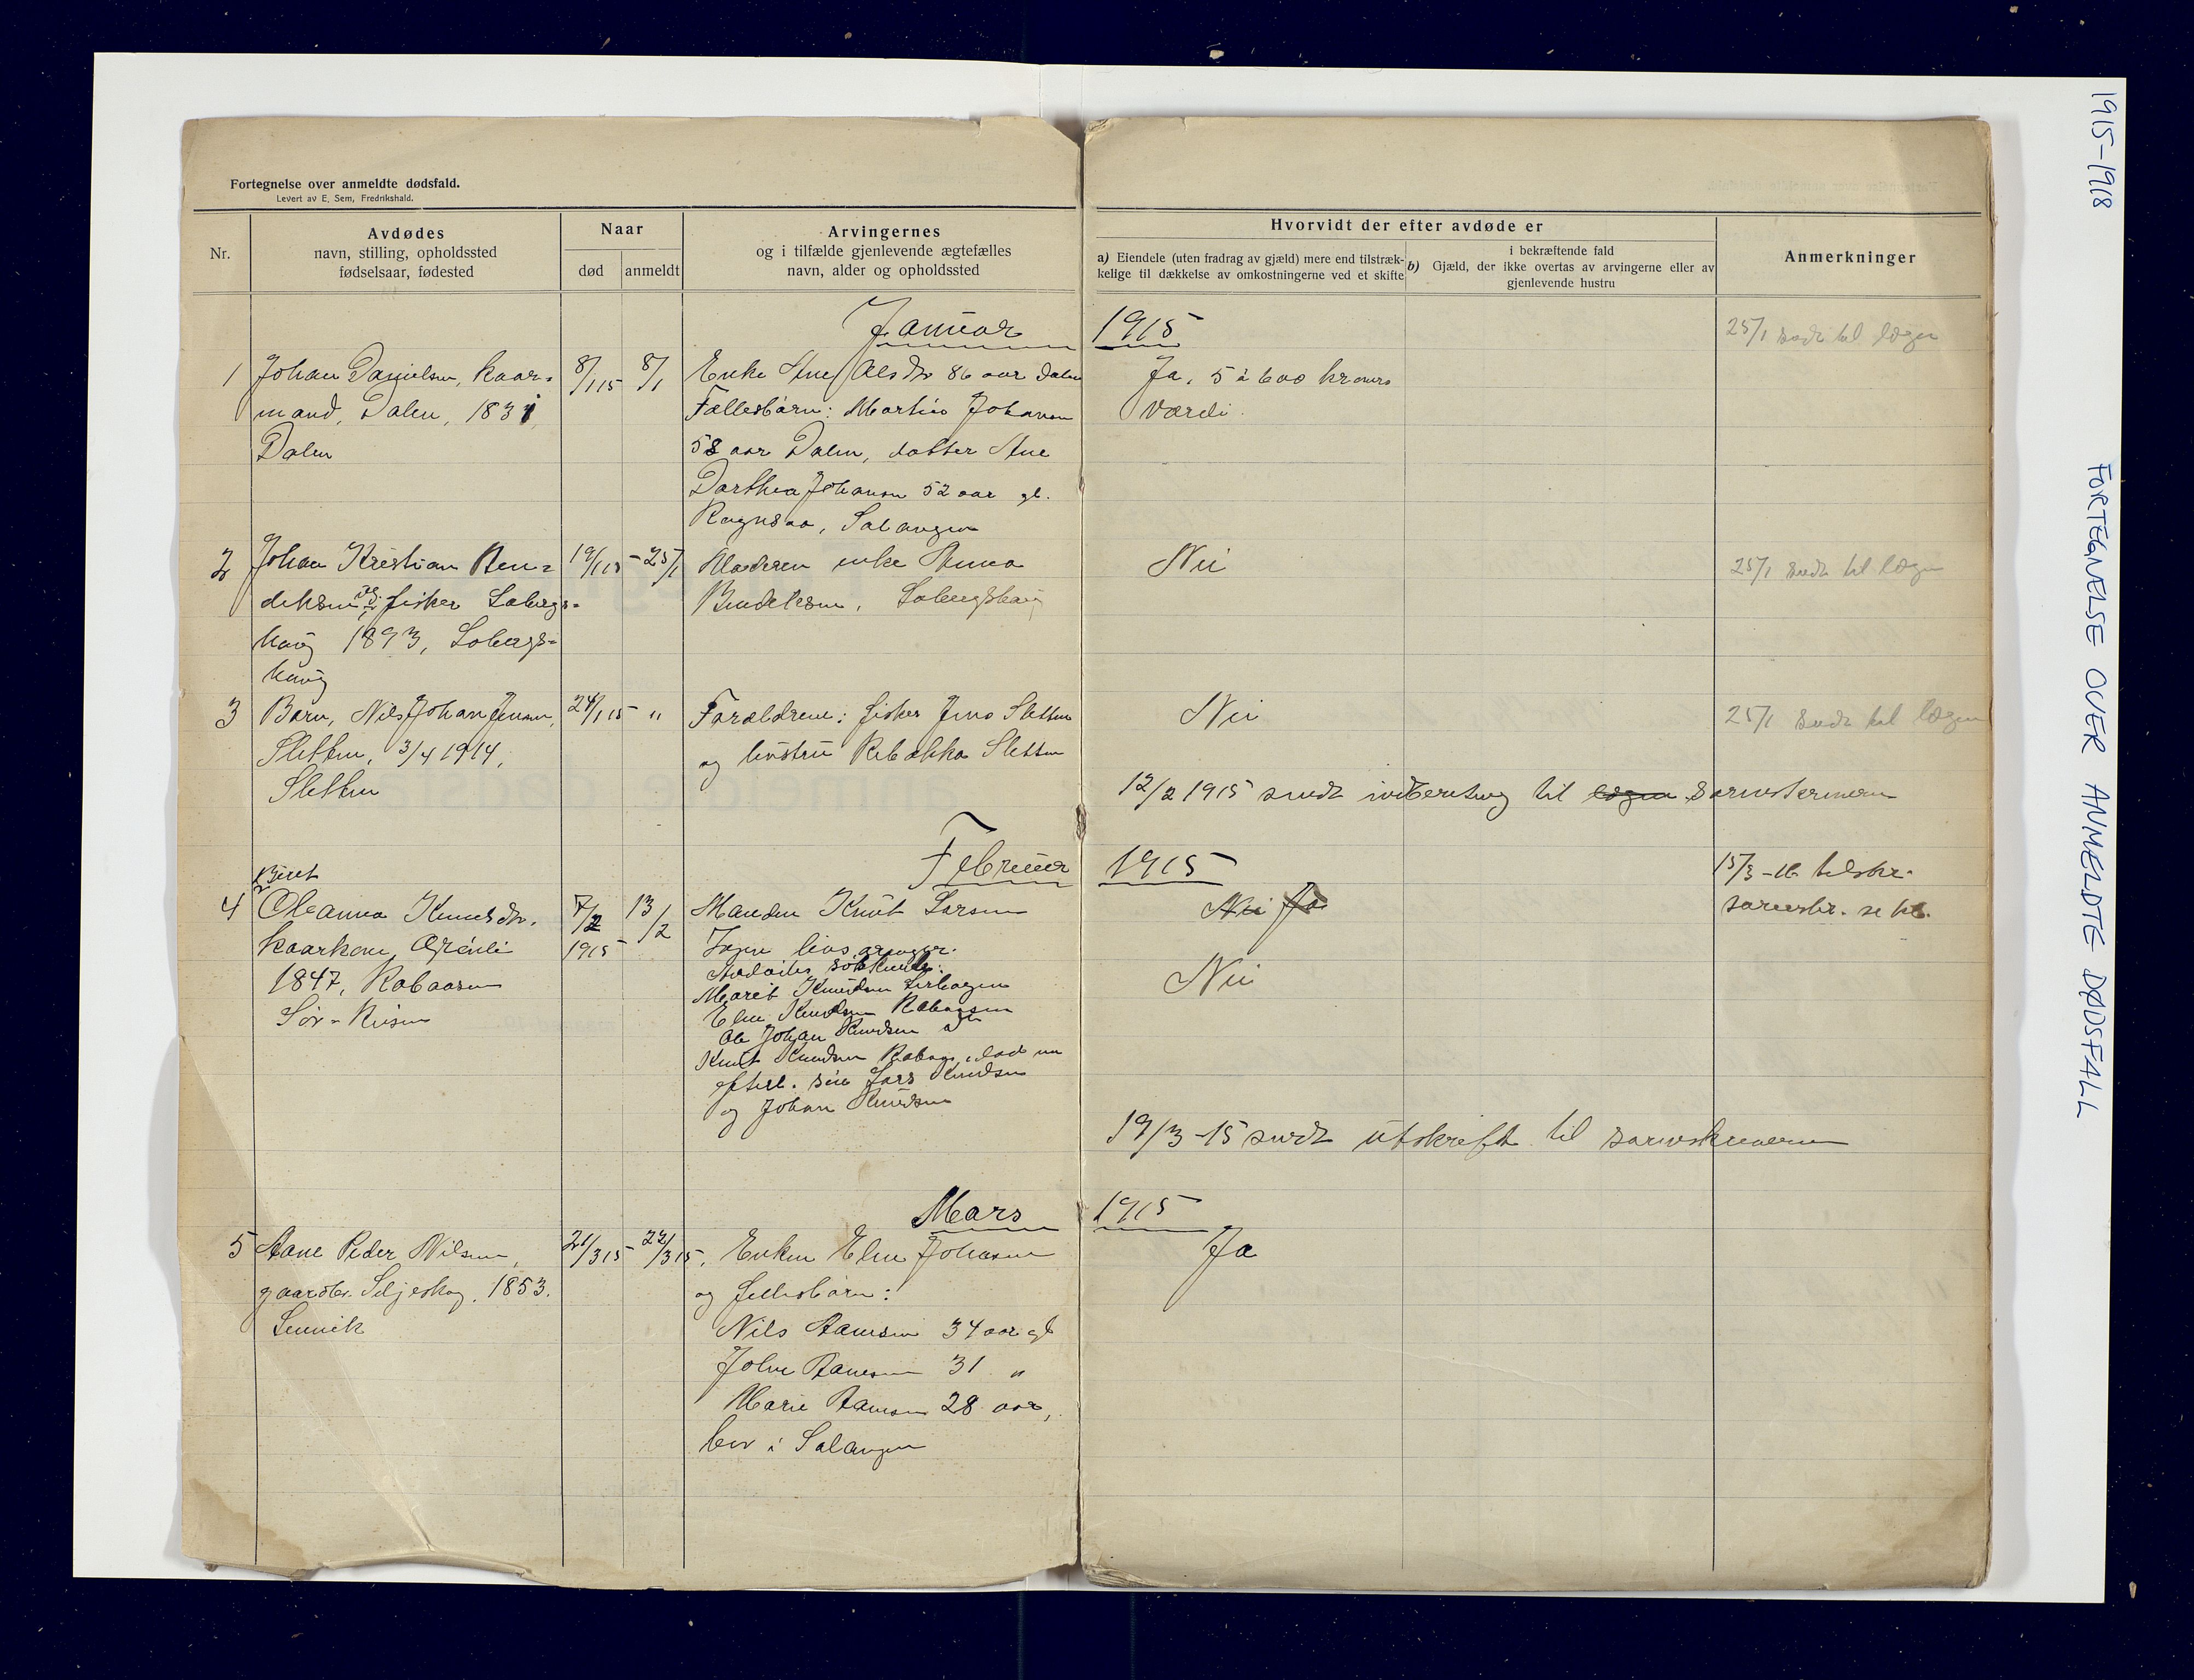 1915-1918 FORTEGNELSE OVER ANMELDTE DØDSFALL
Fortegnelse over anmeldte dødsfald.
Levert av E. Sem, Fredrikshald.
Nr.
Avdødes
navn, stilling, opholdssted
fødselsaar, fødested
Naar
død
anmeldt
Arvingernes
og i tilfælde gjenlevende ægtefælles
navn, alder og opholdssted
Hvorvidt der efter avdøde er
a) Eiendele (uten fradrag av gjæld) mere end tilstræk-
kelige til dækkelse av omkostningerne ved et skifte
i bekræftende fald
b) Gjæld, der ikke overtas av arvingerne eller av
gjenlevende hustru
Anmerkninger
Januar 1915
25/1 sendt til lægen
1 Johan Danielsen, kaar- 8/1 15 8/1 Enke Ane Olsdtr 86 aar Dalen Ja, 5 à 600 kroners
mand, Dalen, 1831, Fællesbarn: Martin Johansen værdi.
Dalen 58 aar Dalen, datter Ane
Dorthea Johansen 52 aar gl.
Salangen
2 Johan Kristian Ben- 19/1 15 25/1 Moderen enke Anna Nei 25/1 sendt til lægen
diksen fisker
1893,
3 Barn, Nils Johan Jensen, 24/1 15 " Forældrene: fisker Jens Sletten Nei 25/1 sendt til lægen
Sletten, 3/4 1914, og hustru Rebekka Sletten
Sletten
12/2 1915 sendt indberetning til lægen sorenskriveren
Februar 1915
Beret 15/3-16 tilskr.
4 Oleanna Knudsdtr. 7/2 13/2 Manden Knut Larsen Nei Ja sorenskr. se
kaarkone, 1915 Ingen livsarvinger.
1847, Rabaasen Avdødes søskende: Nei
Marit Knudsen
Elen Knudsen Rabaasen
Ole Johan Knudsen
Knut Knudsen
Lars Knudsen
og Johan Knudsen
19/3-15 sendt utskrift til sorenskriveren
Mars 1915
5 Aane Peder Nilsen, 21/3 15 22/3 15. Enken Elen Johansen Ja
gaardbr. Seljeskog, 1853. og fællesbarn:
Nils Aanesen 34 aar gl
Johan Aanesen 31 "
Marie Aanesen 28 aar,
bor i Salangen